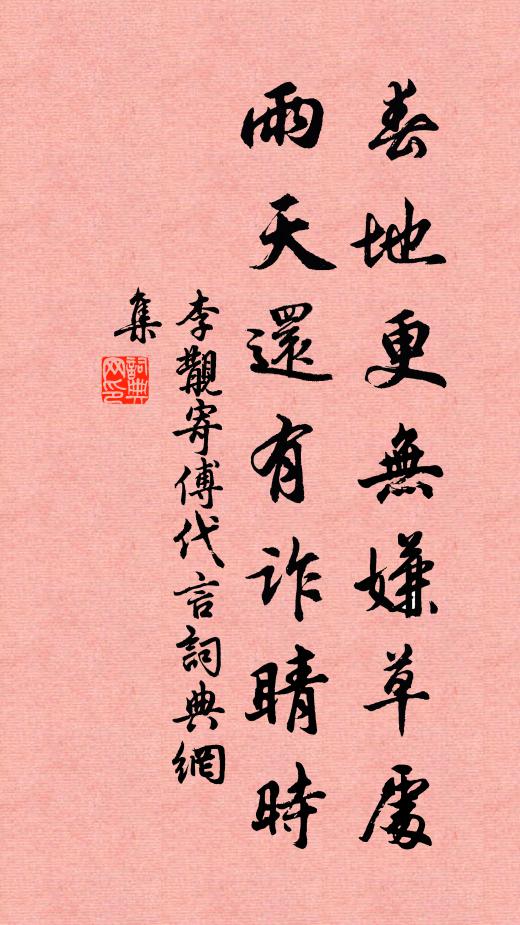 春地更無嫌草處
雨天還有詐晴時
李覯寄傅代言詞典網
集
詞典網印